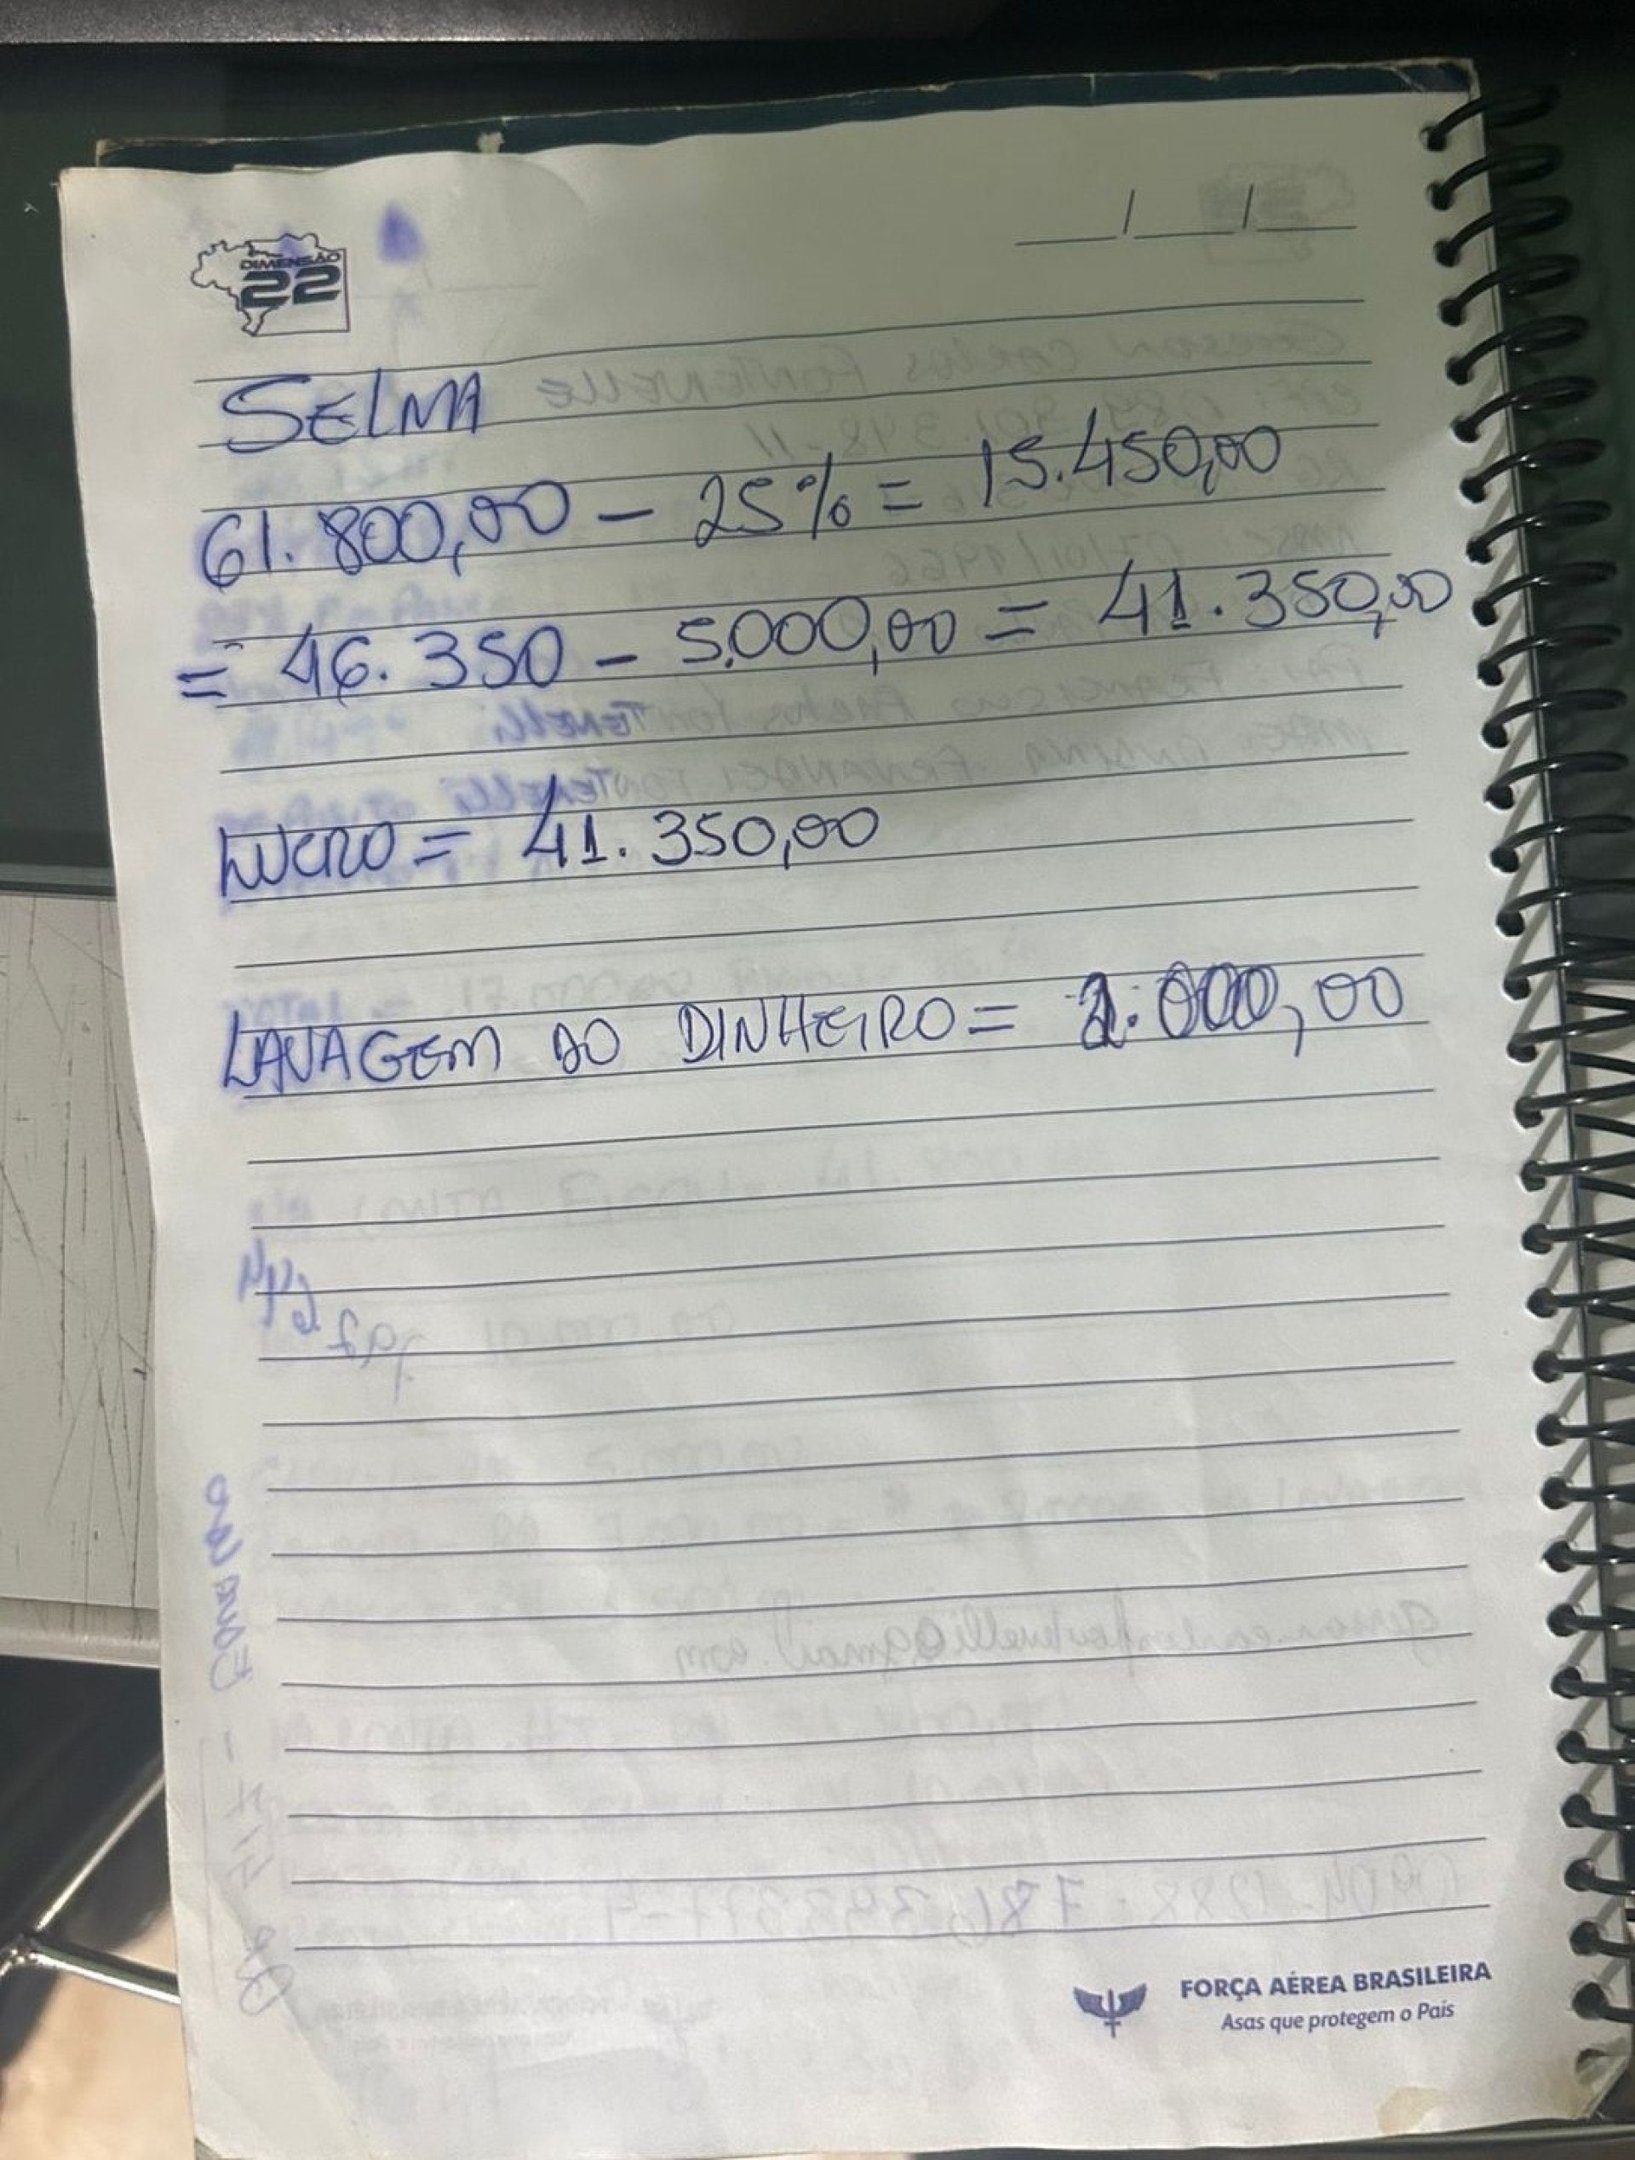 DIMENSÃO
22
__/__/__
SELMA
61.800,00 - 25% = 15.450,00
= 46.350 - 5.000,00 = 41.350,00
LUCRO = 41.350,00
LAVAGEM DO DINHEIRO = 2.000,00
FORÇA AÉREA BRASILEIRA
Asas que protegem o País